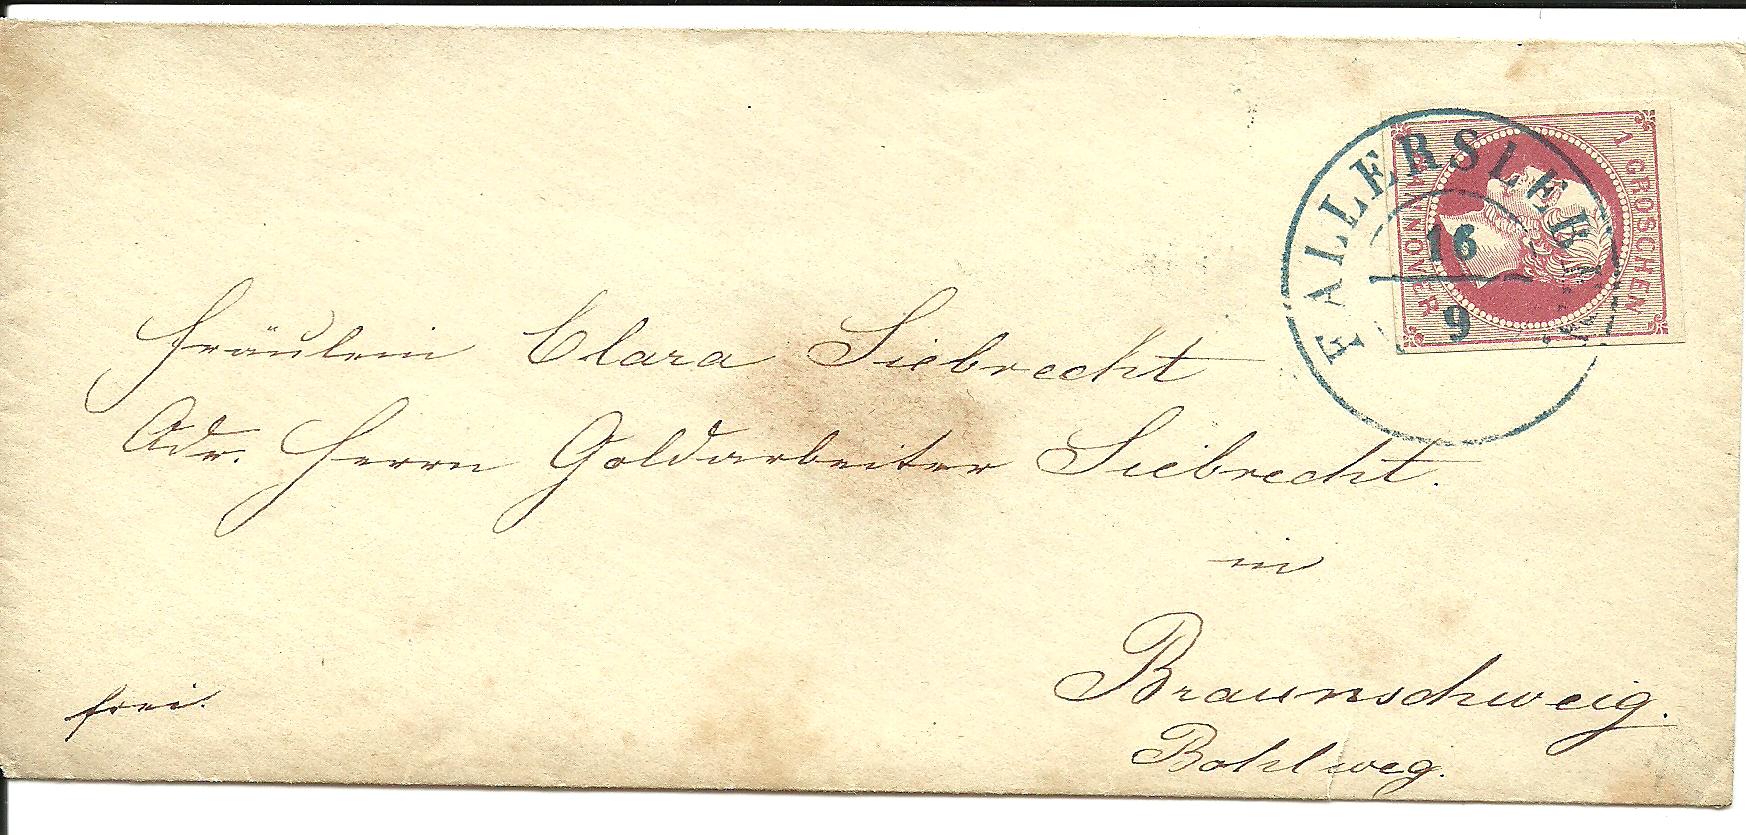 HANNOVER
1 GROSCHEN
FALLERSLEBEN
16
9
Fräulein Clara Siebrecht
Adr. Herrn Goldarbeiter Siebrecht.
in
Braunschweig.
Bohlweg.
frei.